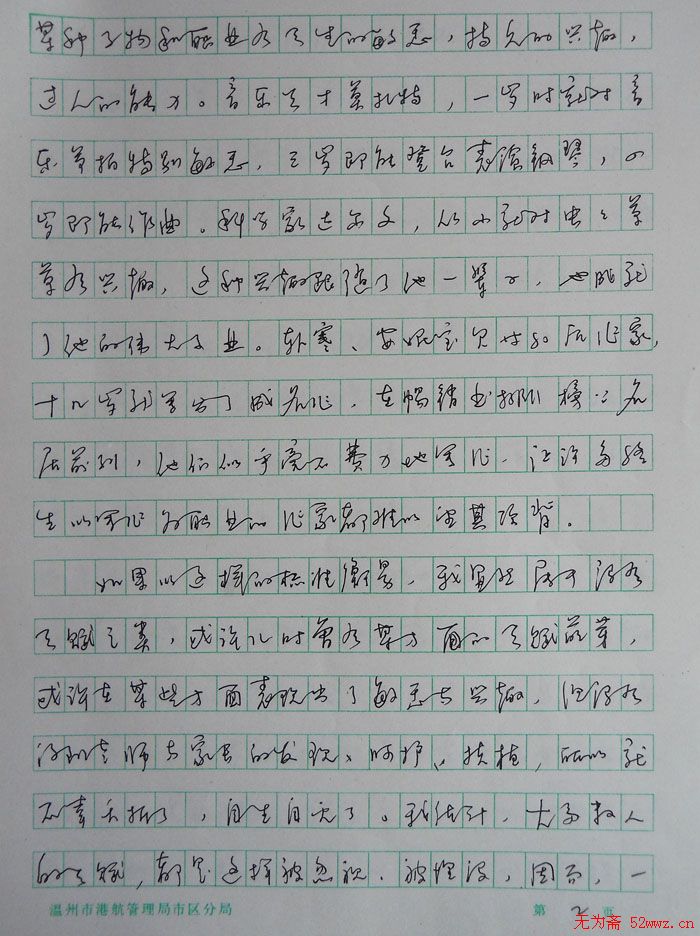 某种事物和职业有天生的敏感，特久的兴趣，
过人的能力。音乐天才莫扎特，一岁时就对音
乐节拍特别敏感，三岁即能登台表演钢琴，四
岁即能作曲。科学家达尔文，从小就对虫虫草
草有兴趣，这种兴趣跟随了他一辈子，也成就
了他的伟大事业。韩寒、安妮宝贝等80后作家，
十几岁就写出了成名作，在畅销书排行榜上名
居前列，他们似乎毫不费力地写作，让许多终
生以写作为职业的作家都难以望其项背。
如果以这样的标准衡量，我显然属于没有
天赋之类，或许儿时曾有某方面的天赋萌芽，
或许在某些方面表现出了敏感与兴趣，但没有
得到老师与家长的发现、呵护、扶植，所以就
不幸夭折了，自生自灭了。我估计，大多数人
的天赋，都是这样被忽视、被埋没，因而，一
温州市港航管理局市区分局
第 2 页
无为斋 52wwz.cn